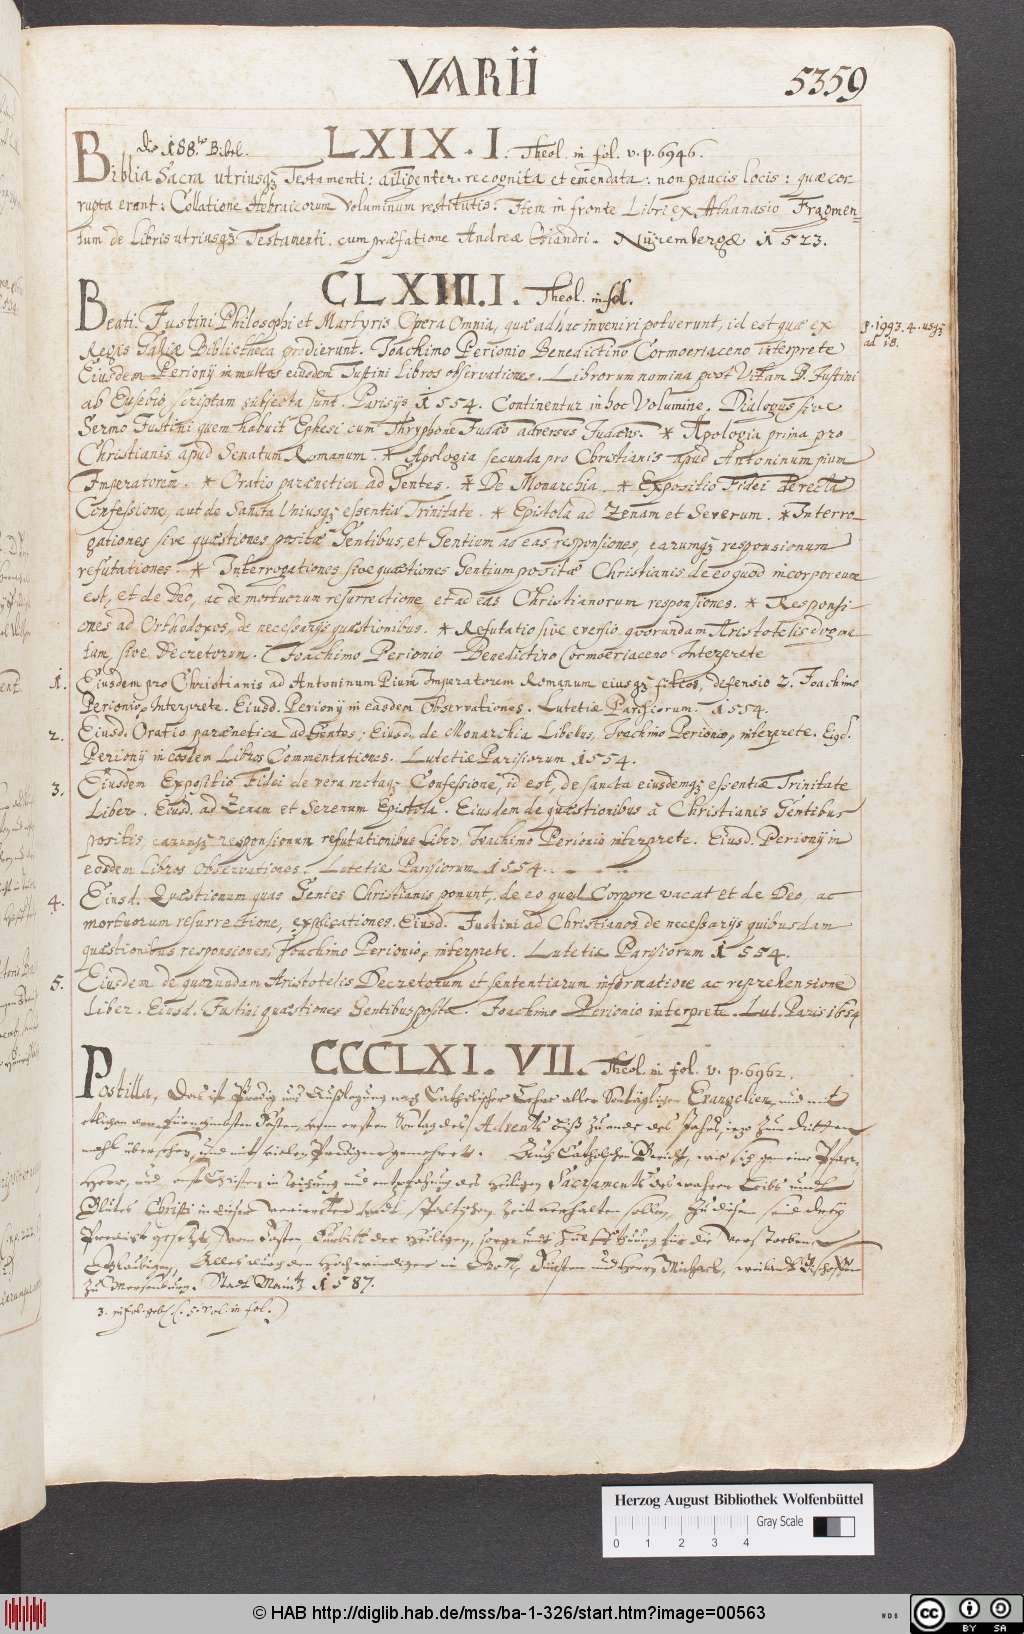 VARII
5359
Die 188.te Bibel.
LXIX. I. Theol. in fol. v. p. 6946.
Biblia Sacra utriusqȝ Testamenti: diligenter recognita et emendata: non paucis locis: quæ cor
rupta erant: Collatione Hebraicorum Voluminum restitutis. Item in fronte Libri ex Athanasio Fragmen=
tum de Libris utriusqȝ Testamenti. cum præfatione Andreæ Osiandri. Nürembergæ 1523.
CLXIIII. I. Theol. in fol.
Beati Justini Philosophi et Martyris Opera Omnia, quæ ad huc inveniri potuerunt, id est quæ ex
Regis Galliæ Bibliotheca prodierunt. Joachimo Perionio Benedictino Cormoeriaceno interprete
p. 1993. 4. usqȝ
ad 18.
Eiusdem Perionij in multos eiusdem Justini Libros observationes. Librorum nomina post Vitam B. Justini
ab Eusebio scriptam subjecta sunt. Parisijs 1554. Continentur in hoc Volumine. Dialogus sive
Sermo Justini quem habuit Ephesi cum Thryphone Judæo adversus Judæos. * Apologia prima pro
Christianis apud Senatum Romanum. * Apologia secunda pro Christianis apud Antoninum pium
Imperatorem. * Oratio parænetica ad Gentes. * De Monarchia. * Expositio Fidei de recta
Confessione, aut de Sancta Uniusqȝ essentiæ Trinitate. * Epistola ad Zenam et Severum. * Interro-
gationes sive quæstiones positæ Gentibus, et Gentium ad eas responsiones, earumqȝ responsionum
refutationes. * Interrogationes sive quæstiones Gentium positæ Christianis de eo quod incorporeum
est, et de Deo, ac de mortuorum resurrectione et ad eas Christianorum responsiones. * Responsi-
ones ad Orthodoxos, de necessarijs quæstionibus. * Refutatio sive eversio quorundam Aristotelis dogma-
tum, sive Decretorum. Joachimo Perionio Benedictino Cormoeriaceno Interprete
1. Eiusdem pro Christianis ad Antoninum Pium Imperatorem Romanum eiusqȝ filios, defensio 2. Joachimo
Perionio, Interprete. Eiusd. Perionij in easdem Observationes. Lutetiæ Parisiorum. 1554.
2. Eiusd. Oratio parænetica ad Gentes; Eiusd. de Monarchia Libellus, Joachimo Perionio, interprete. Eiusd.
Perionij in eosdem Libros Commentationes. Lutetiæ Parisiorum 1554.
3. Eiusdem Expositio Fidei de vera rectaqȝ Confessione, id est, de sancta eiusdemqȝ essentiæ Trinitate
Liber. Eiusd. ad Zenam et Serenum Epistola. Eiusdem de quæstionibus à Christianis Gentibus
positis, earumqȝ responsionum refutationibus Liber, Joachimo Perionio interprete. Eiusd. Perionij in
eosdem Libros Observationes. Lutetiæ Parisiorum 1554.
4. Eiusd. Quæstionum quas Gentes Christianis ponunt, de eo quod Corpore vacat et de Deo, ac
mortuorum resurrectione, explicationes. Eiusd. Justini ad Christianos de necessarijs quibusdam
quæstionibus responsiones, Joachimo Perionio, interprete. Lutetiæ Parisiorum 1554.
5. Eiusdem de quorundam Aristotelis Decretorum et sententiarum informatione ac reprehensione
Liber. Eiusd. Justini quæstiones Gentibus positæ. Joachimo Perionio interprete. Lut. Paris 1654
CCCLXI. VII. Theol. in fol. v. p. 6962.
Postilla, Das ist Predig und Außlegung nach Catholischer Lehre aller Sontäglichen Evangelien, und mit
etlichen der fürnehmbsten Festen, vom ersten Sontag des Advents biß zu ende des Jahrs, itzo zum dritten
mahl übersehen, und mit vielen Predigen gemehret. Auch Catholischen Bericht, wie sich gemeine Pfarr-
Herr, und Christen in Reichung und entpfahung des heiligen Sacraments des wahren Leibs undt
Blutes Christi in dieser Zeit verhalten sollen. Zu diesem seind drey
Predigt gesetzt, vom Fasten, Fürbitt der Heiligen, für die verstorbene
Glaubigen, Alles durch den Hochwürdigen in Gott, Fürsten und Herrn Michael, weilandt Bischoffen
zu Mersenburg. Stadt Maintz 1587.
3. in fol. geb. (5. Vol. in fol.)
Herzog August Bibliothek Wolfenbüttel
Gray Scale
0 1 2 3 4
© HAB http://diglib.hab.de/mss/ba-1-326/start.htm?image=00563
WDB
cc BY SA